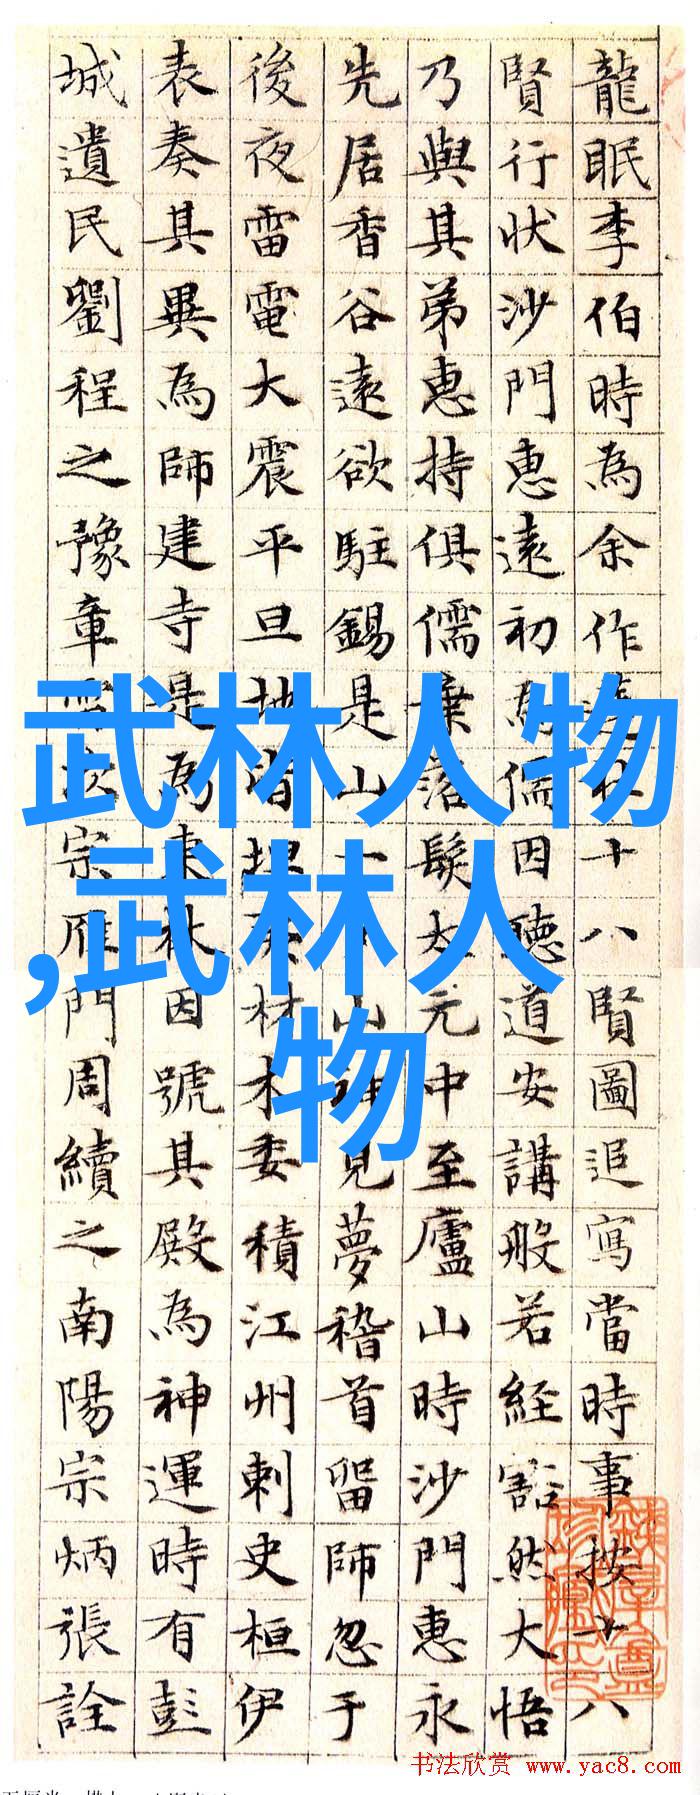 龍眠李伯時為余作蓮社十八賢圖追寫當時事按十八
賢行狀沙門惠遠初為儒因聽道安講般若經豁然大悟
乃與其弟惠持俱儒棄落髮太元中至廬山時沙門惠永
先居香谷遠欲駐錫是山一山神見夢稽首留師忽于
後夜雷電大震平旦地皆坦夷材木委積江州刺史桓伊
表奏其異為師建寺是為東林因號其殿為神運時有彭
城遺民劉程之豫章雷次宗雁門周續之南陽宗炳張詮
武林人物
,武林人
物
书法欣赏 www.yac8.com